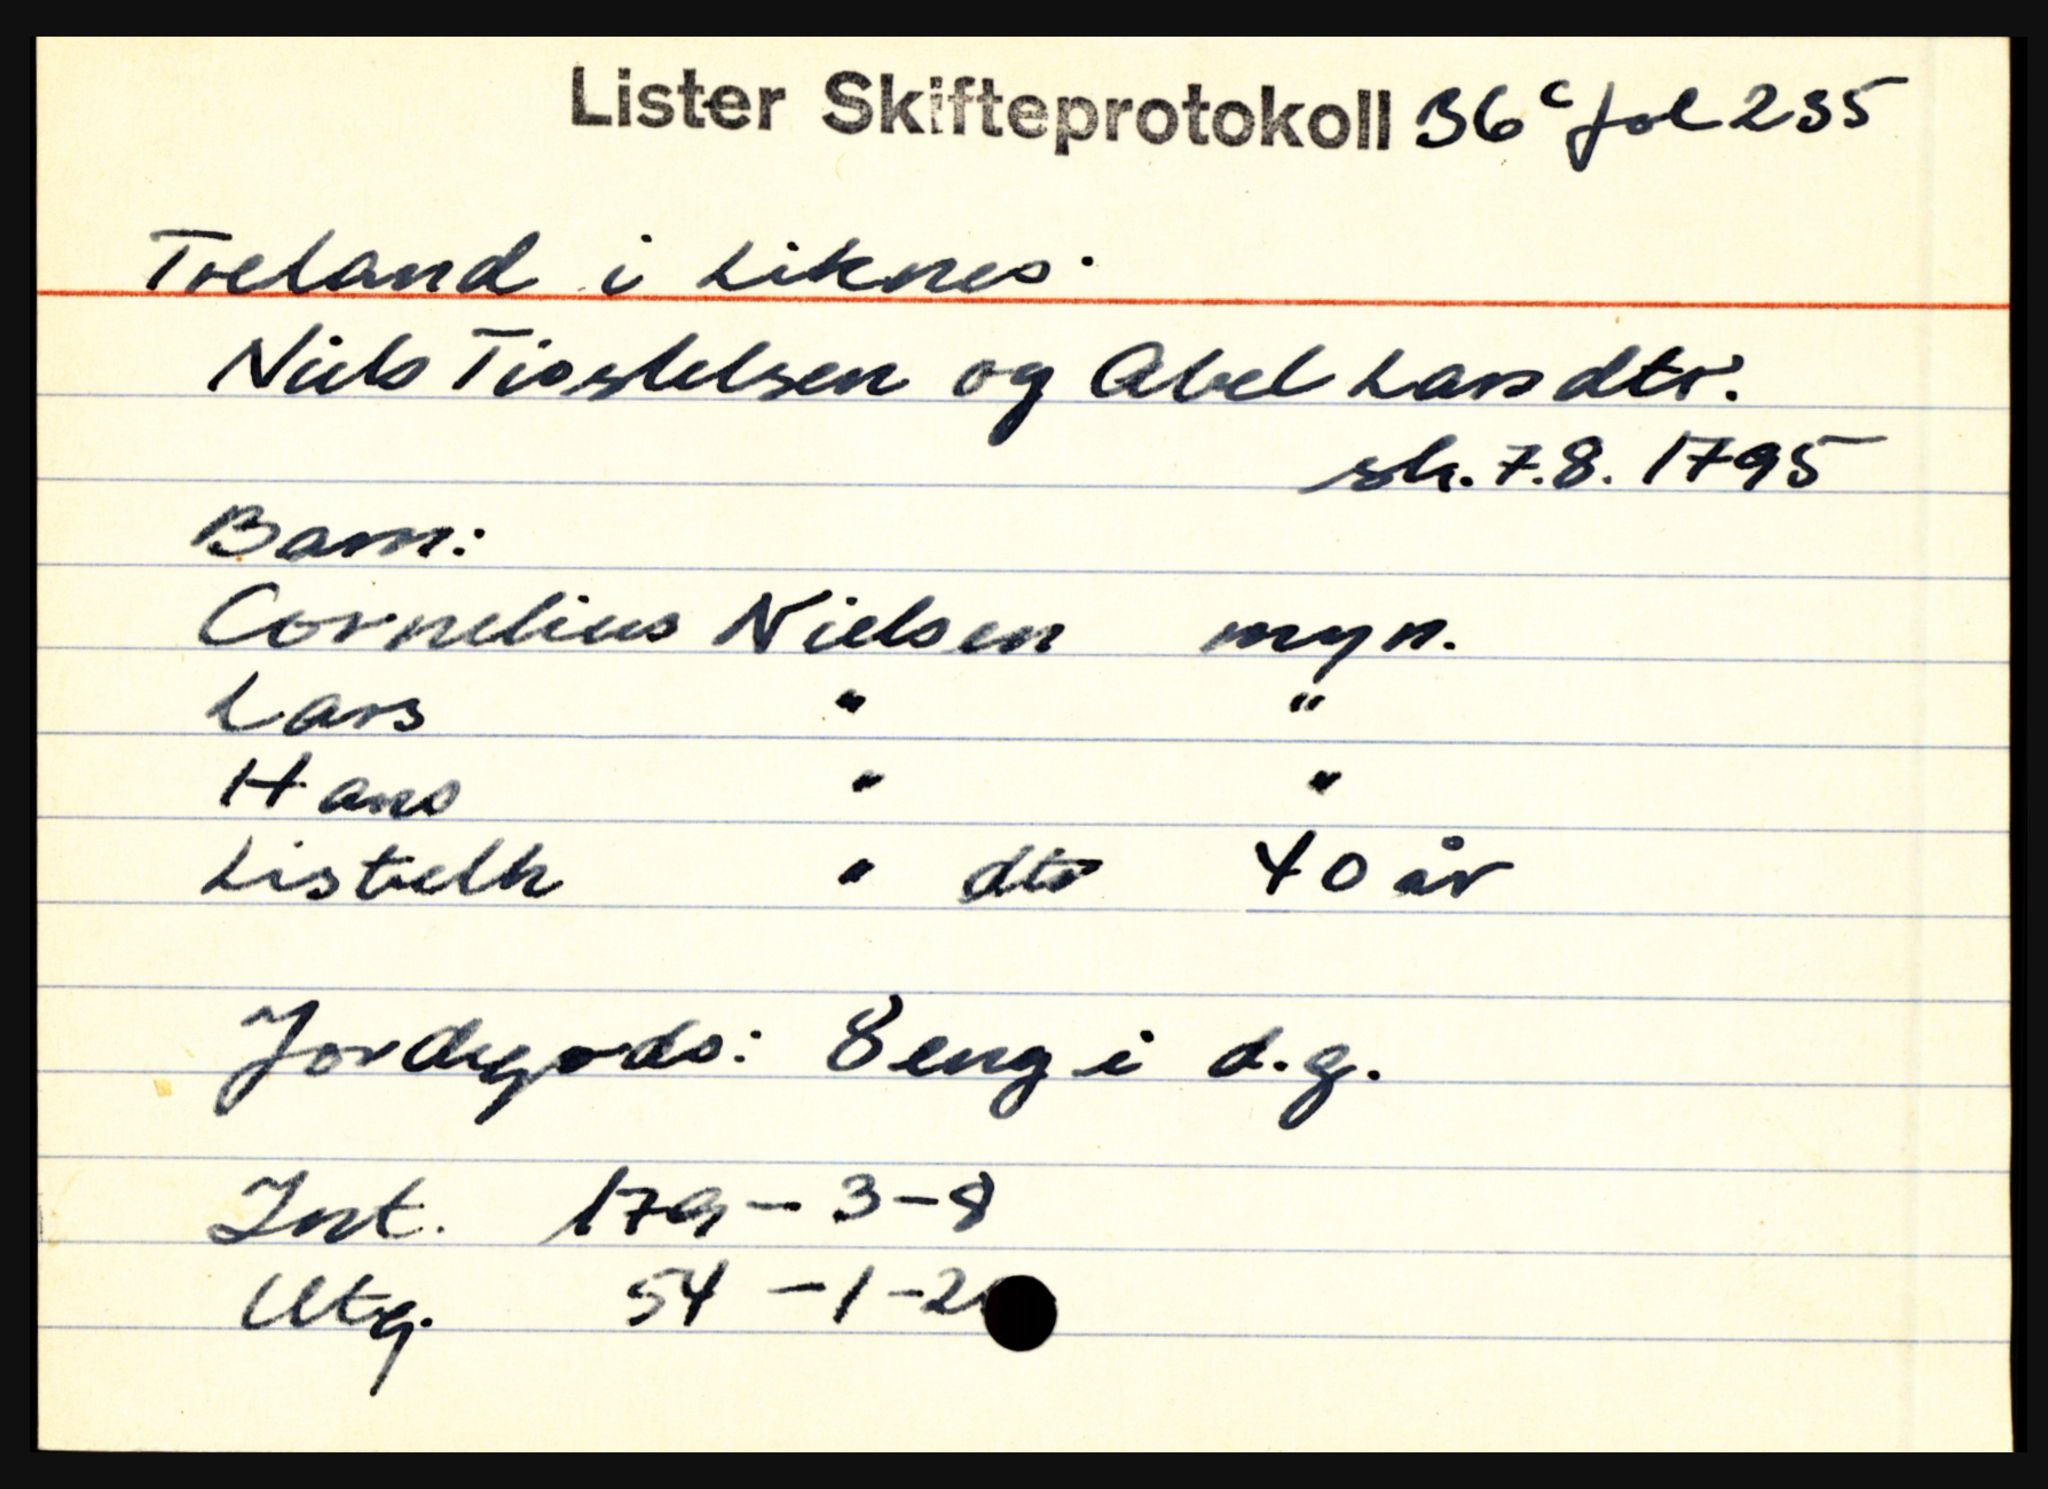 Lister Skifteprotokoll 36c fol 235
Træland i Liknes.
Niels Tiostelsen og Abel Larsdtr.
sk. 7.8.1795
Barn:
Cornelius Nielsen myn.
Lars " "
Hans " "
Listveth " dtr 40 år
Jordegods: 8 eng i d.g.
Int. 179 - 3 - 8
Utg. 54 - 1 - 2